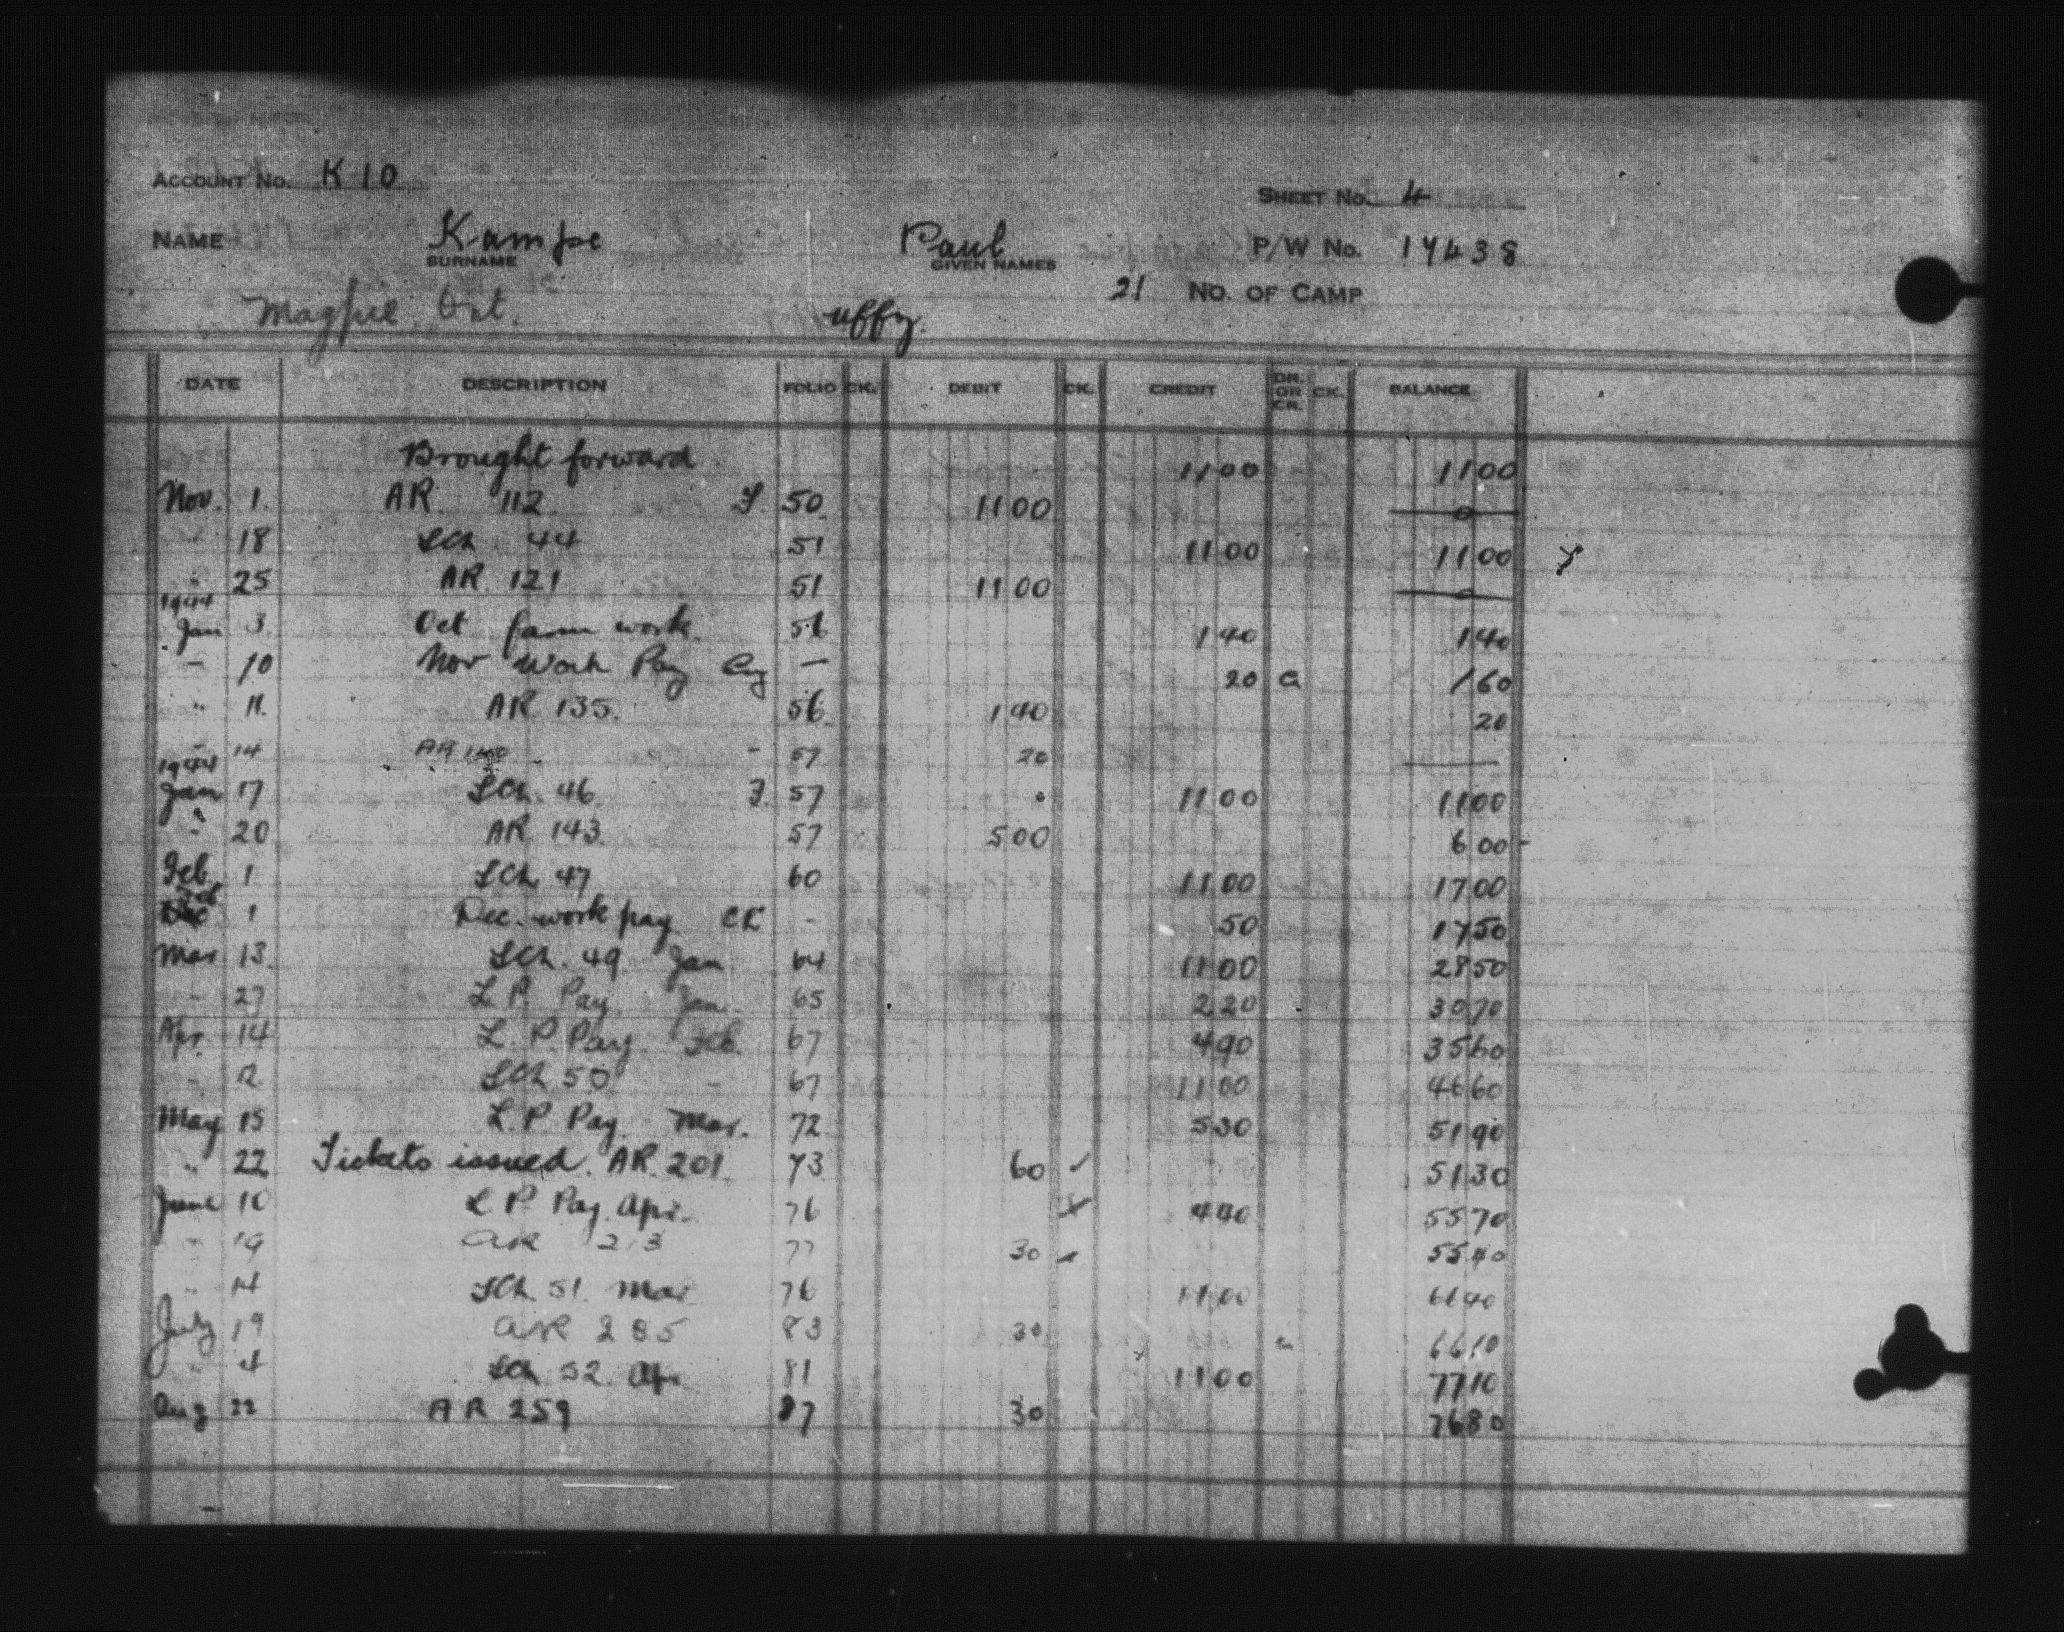 ACCOUNT NO. K 10
SHEET NO. 4
NAME Kampe Paul P/W NO. 17438
SURNAME GIVEN NAMES
21 NO. OF CAMP
Magpie Ont. uffy.
DATE DESCRIPTION FOLIO CK. DEBIT CK. CREDIT DR. OR CR. CK. BALANCE
Brought forward 1100 1100
Nov. 1. AR 112 50 1100 0
" 18 SCh 44 51 1100 1100
" 25 AR 121 51 1100 0
1944
Jan 3. Oct farm work. 56 140 140
- 10 Nov Work Pay — 20 160
" 11. AR 135. 56 140 20
- 14 AR - 57 20 —
1944
Jan 17 SCh. 46 57 1100 1100
" 20 AR 143 57 500 600
Feb 1 SCh 47 60 1100 1700
Feb 1 Dec. work pay - 50 1750
Mar 13. SCh. 49 Jan 64 1100 2850
- 27 L. P. Pay Jan. 65 220 3070
Apr. 14 L. P. Pay Feb. 67 490 3560
- 12 SCh 50 - 67 1100 4660
May 15 L. P. Pay Mar. 72 530 5190
" 22 Tickets issued. AR 201. 73 60 ✓ 5130
June 10 L P. Pay. Apr. 76 440 5570
- 19 AR 213 77 30 5540
" 14 SCh 51. Mar 76 1100 6640
July 19 AR 235 83 30 6610
" 4 SCh 52. Apr 81 1100 7710
Aug 22 AR 259 87 30 7680